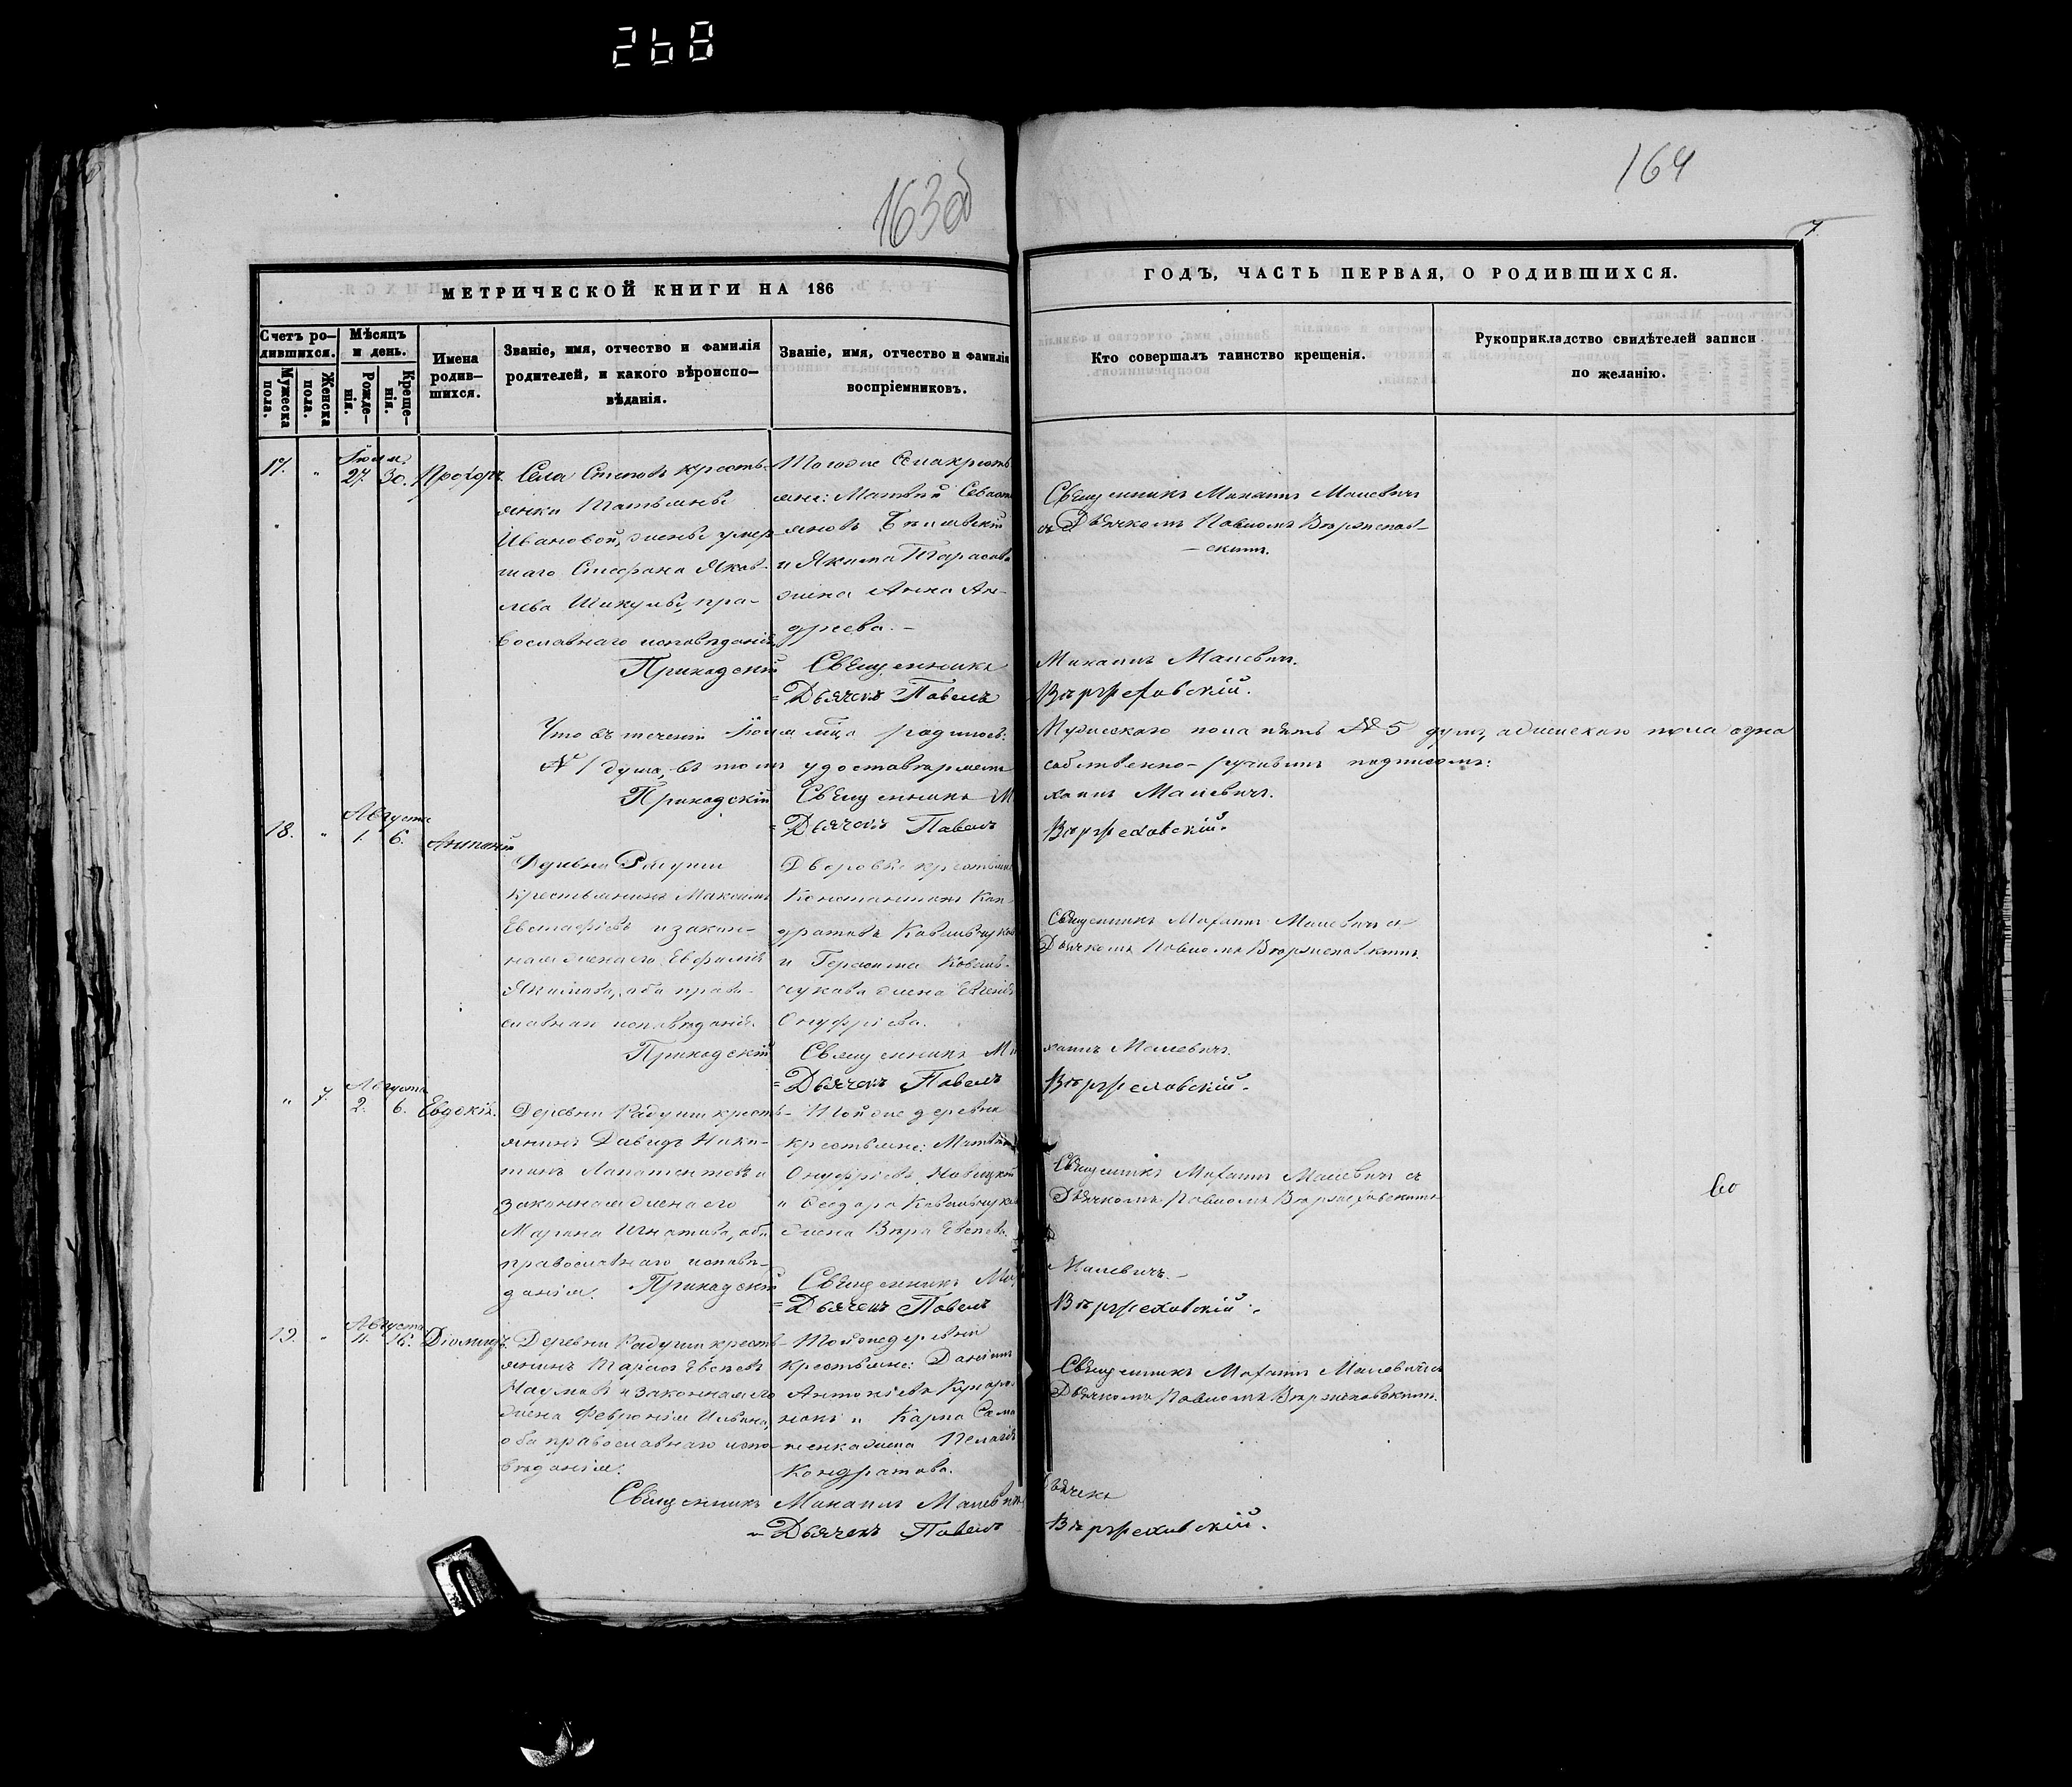 268
163об
164
7
МЕТРИЧЕСКОЙ КНИГИ НА 186
ГОДЪ, ЧАСТЬ ПЕРВАЯ, О РОДИВШИХСЯ.
Счетъ ро-
дившихся.
Мужеска
пола.
Женска
пола.
Мѣсяцъ
и день.
Рожде-
нія.
Креще-
нія.
Имена
родив-
шихся.
Званіе, имя, отчество и фамилія
родителей, и какого вѣроиспо-
вѣданія.
Званіе, имя, отчество и фамилія
воспріемниковъ.
Кто совершалъ таинство крещенія.
Рукоприкладство свидѣтелей записи
по желанію.
17. " Іюля 27. 30. Прохоръ.
Села Степовъ кресть-
янки Татьяны
Ивановой, жены умер-
шаго Стефана Яков-
лева Шикулы, пра-
вославнаго исповѣданія.
Тогоже Села крестъ
яне: Матвій Севаст
яновъ
и Якима Тарасова
жена Анна Ан-
дреева. -
Священникъ Михаилъ Малевичъ
съ Дьячкомъ Павломъ Вержехов-
- скимъ.
Приходскій Священникъ Михаилъ Малевич.
Дьячекъ Павелъ Вержеховскій.
Что въ теченіи Іюля м̃ца родилось: Мужескаго пола пять № 5 душъ, а женскаго пола одна
№ 1 душа, въ томъ удостовѣряемъ собственно-ручнымъ подписомъ:
Приходскій Священникъ Михаилъ Малевичъ.
Дьячекъ Павелъ Вержеховскій.
18. " Августа 1. 6.
крестьянинъ Максимъ
Евстафіевъ и закон-
ная жена его Евфимія
Якимова, оба право-
славнаго исповѣданія.
крестьяне
Константинъ Кон-
дратовъ Ковальчуковъ
и Герасима Коваль-
чукова жена
Онуфріева.
Священникъ Михаилъ Малевичъ съ
Дьячкомъ Павломъ Вержеховскимъ.
Приходскій Священникъ Михаилъ Малевичъ.
Дьячекъ Павелъ Вержеховскій.
" 7. Августа 2. 6. Евдокія.
Деревни Радуши кресть-
янинъ Давидъ Ники-
тинъ и
законная жена его
Марина Игнатова, оба
православнаго исповѣ-
данія.
Тойже деревни
крестьяне: Матвій
Онуфріевъ Новицкій
и Ѳеодора Ковальчукова
жена Вѣра Евсеева.
Священникъ Михаилъ Малевичъ съ
Дьячкомъ Павломъ Вержеховскимъ
Приходскій Священникъ Мих Малевичъ. -
Дьячекъ Павелъ Вержеховскій.
19. " Августа 11. 16. Діомидъ.
Деревни Радуши кресть-
янинъ Тарасъ Евсеевъ
Наумовъ и законная его
жена Февронія Ильина,
оба православнаго испо-
вѣданія.
Тойже деревни
крестьяне: Даніилъ
Антоніевъ
и Карпа
жена Пелагія
Кондратова.
Священникъ Михаилъ Малевичъ съ
Дьячкомъ Павломъ Вержеховскимъ.
Священникъ Михаилъ Малевичъ
Дьячекъ
Дьячекъ Павелъ Вержеховскій.